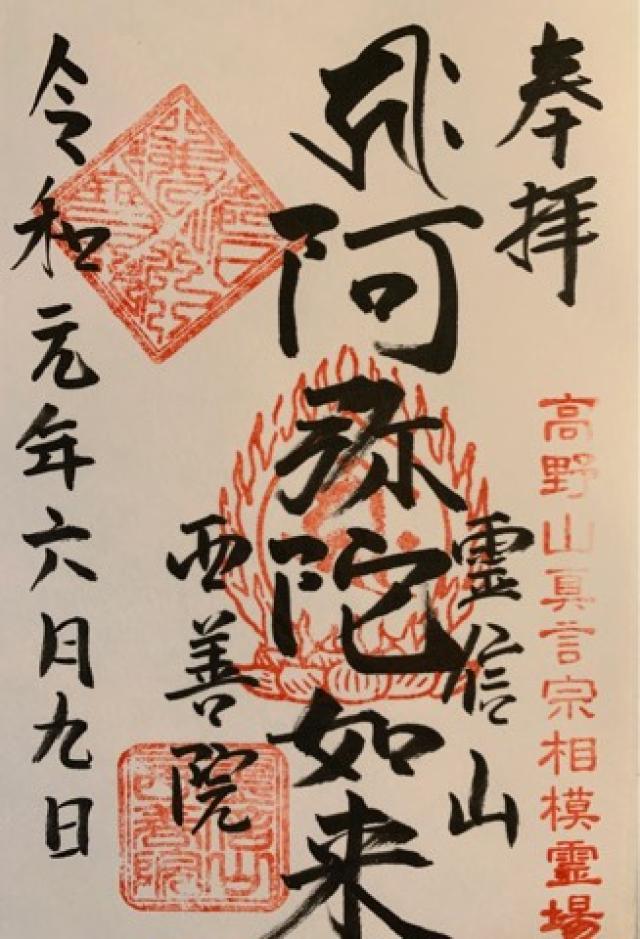 奉拝
高野山真言宗相模霊場
霊信山
阿弥陀如来
西善院
令和元年六月九日